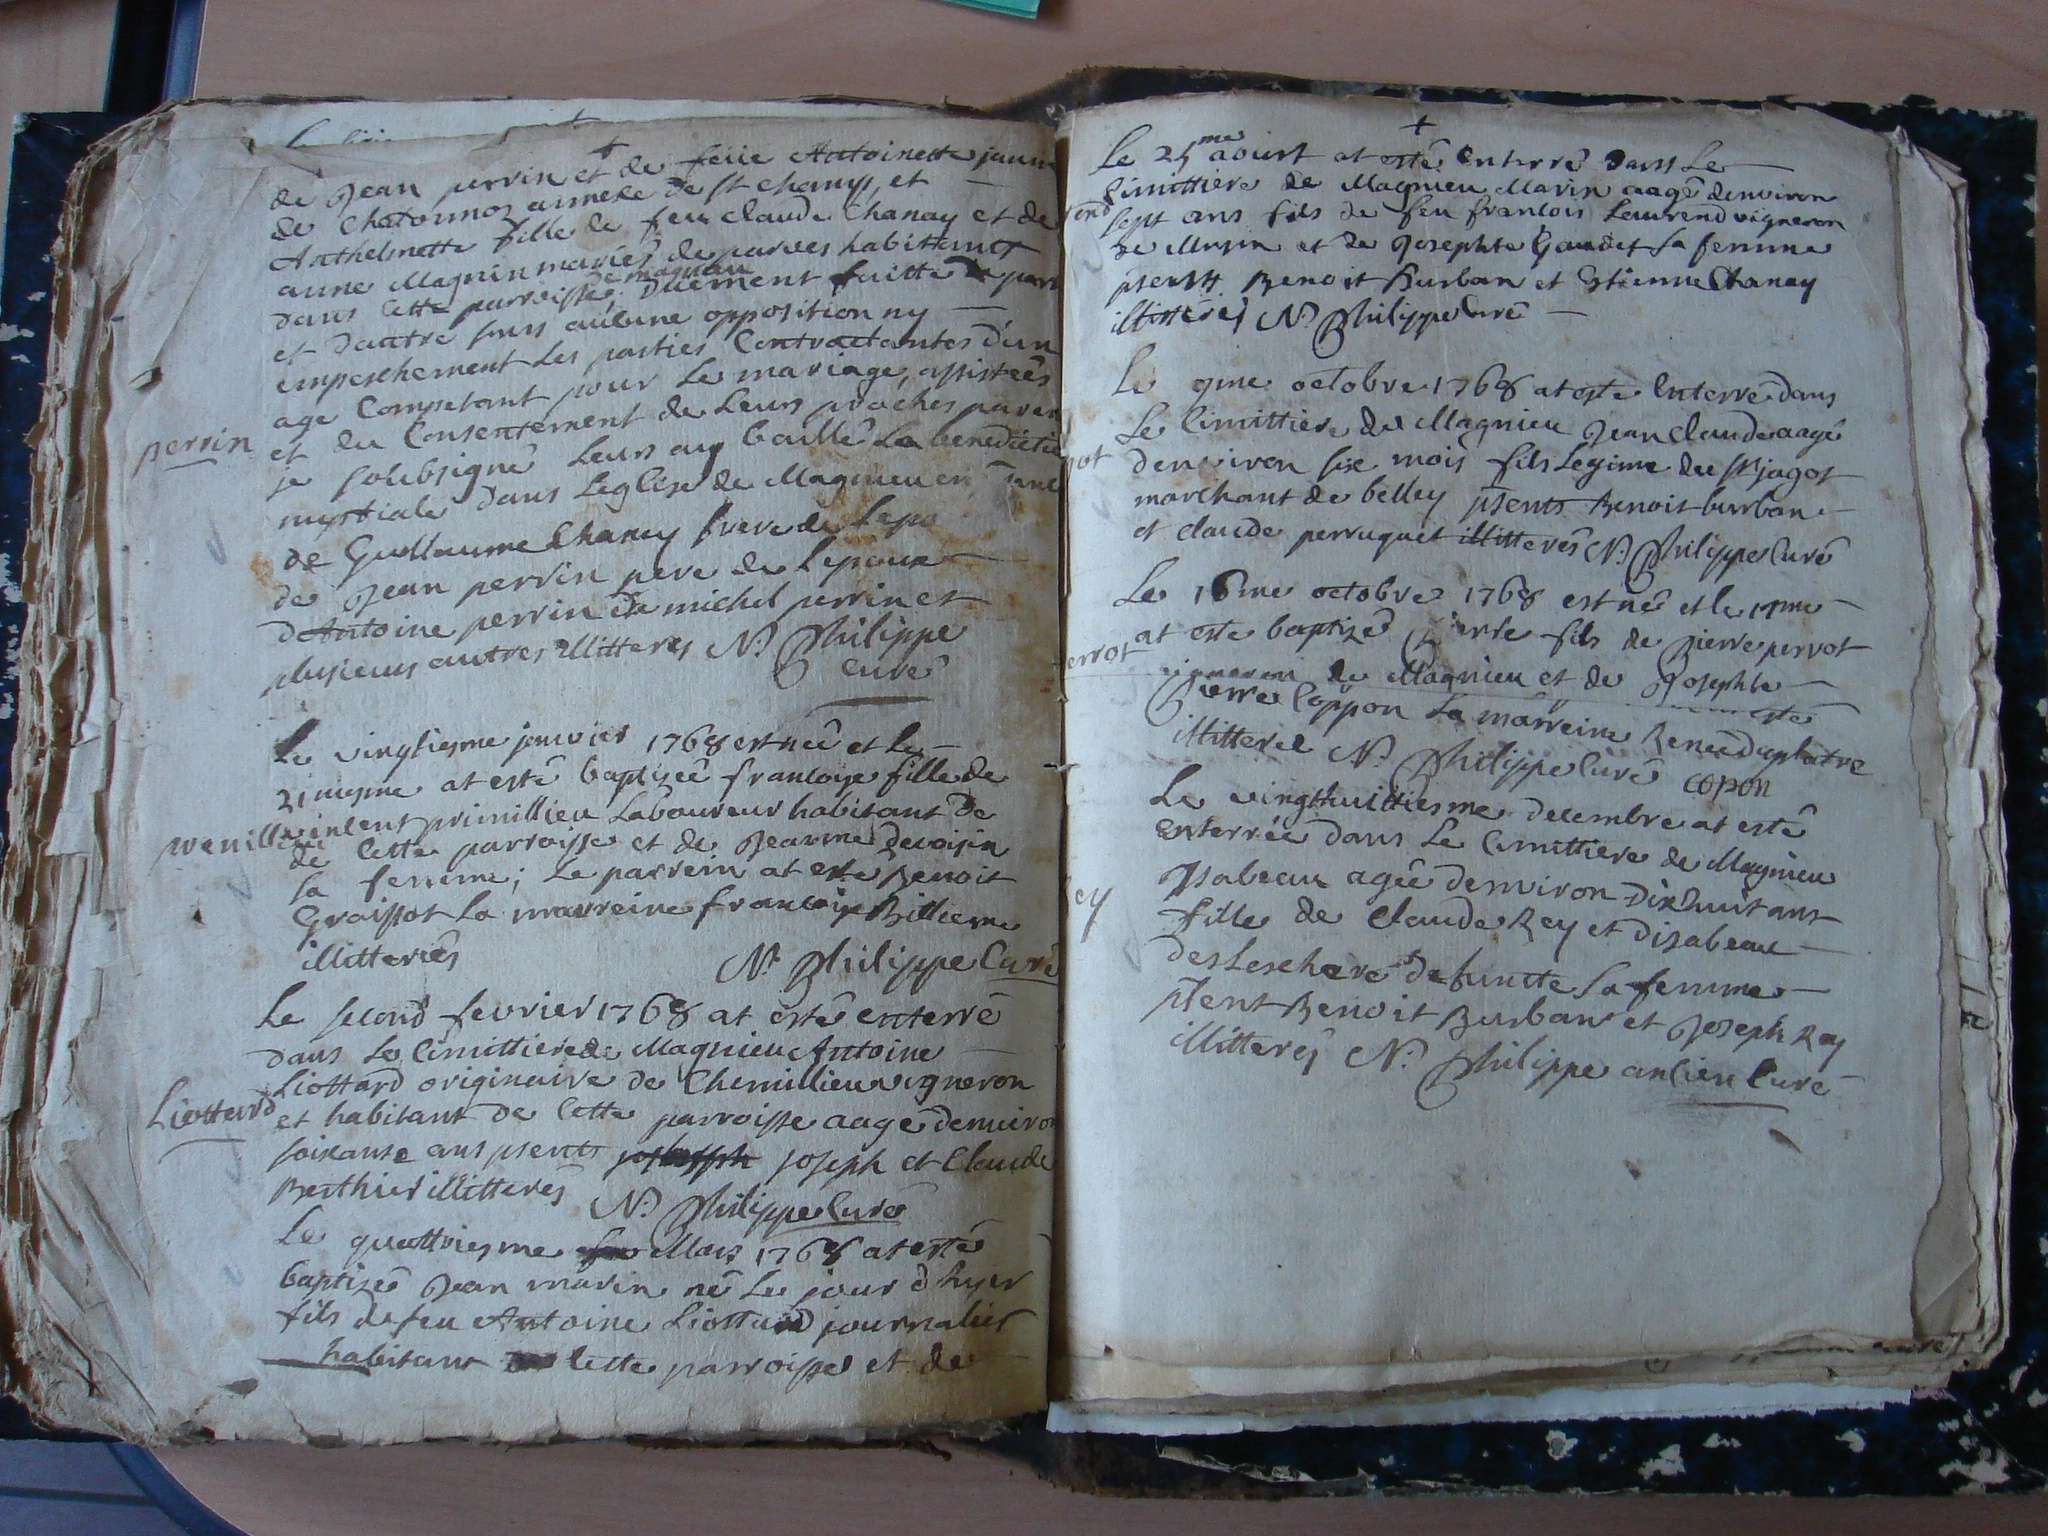 de Jean perrin et de feüe Antoinette
de Chatonnoz annexe de st champt, et
Anthelmette fille de feu Claude Chanay et de
anne Magnin mariés de parves habittants
de magnieu
dans cette parroisse duement faitte de part
et dautre sans aucune opposition ny
empeschement Les parties Contractantes d'un
age Competant pour Le mariage, assistées
perrin
et du Consentement de Leurs proches paren
je soubsigné Leurs ay baillé La benedictio
nuptiale dans L'eglise de Magnieu en
de Guillaume Chanay frere de Lepo
de Jean perrin pere de Lepoux
d'Antoine perrin de michel perrin et
plusieurs autres illitteres N. Philippe
curé
Le vingtiesme janvier 1768 est née et Le
21 mesme at esté baptizée francoise fille de
vincent primillieu Laboureur habitant de
de cette parroisse et de Jeanne Devoisin
sa femme; Le parrein at esté Benoit
Graissot La marreine francoise Billieme
illitterés
N. Philippe Curé
Le second fevrier 1768 at esté enterré
dans Le Cimittiere de Magnieu Antoine
Liottard originaire de Chemillieu vigneron
Liottard
et habitant de Cette parroisse aagé denviron
soixante ans psents joseph et Claude
Berthier illitterés N. Philippe Curé
Le quattriesme Mars 1768 at esté
baptizé Jean marin né Le jour d'hyer
fils de feu Antoine Liottard journalier
habitant cette parroisse et de
Le 25me aoust at esté enterré dans Le
Cimittiere de Magnieu Marin aagé denviron
sept ans fils de feu francois Laurend vigneron
de Musin et de Josephte Gaudet sa femme
psents Benoit Burban et Estienne Chanay
illitterés N. Philippe Curé
Le 9me octobre 1768 at esté Enterré dans
Le Cimittiere de Magnieu Jean Claude aagé
denviron six mois fils Légime de Sr jagot
marchant de belley psents Benoit burban
et Claude perruquet illitterés N. Philippe Curé
Le 16me octobre 1768 est né et le 17me
at esté baptizé pierre fils de pierre perrot
vigneron de Magnieu et de Josephte
Pierre Coppon La marreine Renée duplatre
illitteré N. Philippe Curé copon
Le vingthuittiesme decembre at esté
enterrée dans Le Cimittiere de Magnieu
Isabeau agée denviron Dixhuit ans
fille de Claude Rey et disabeau
ey
des Leschere defuncte sa femme
psent Benoit Burban et Joseph Rey
illitterés N. Philippe ancien Curé